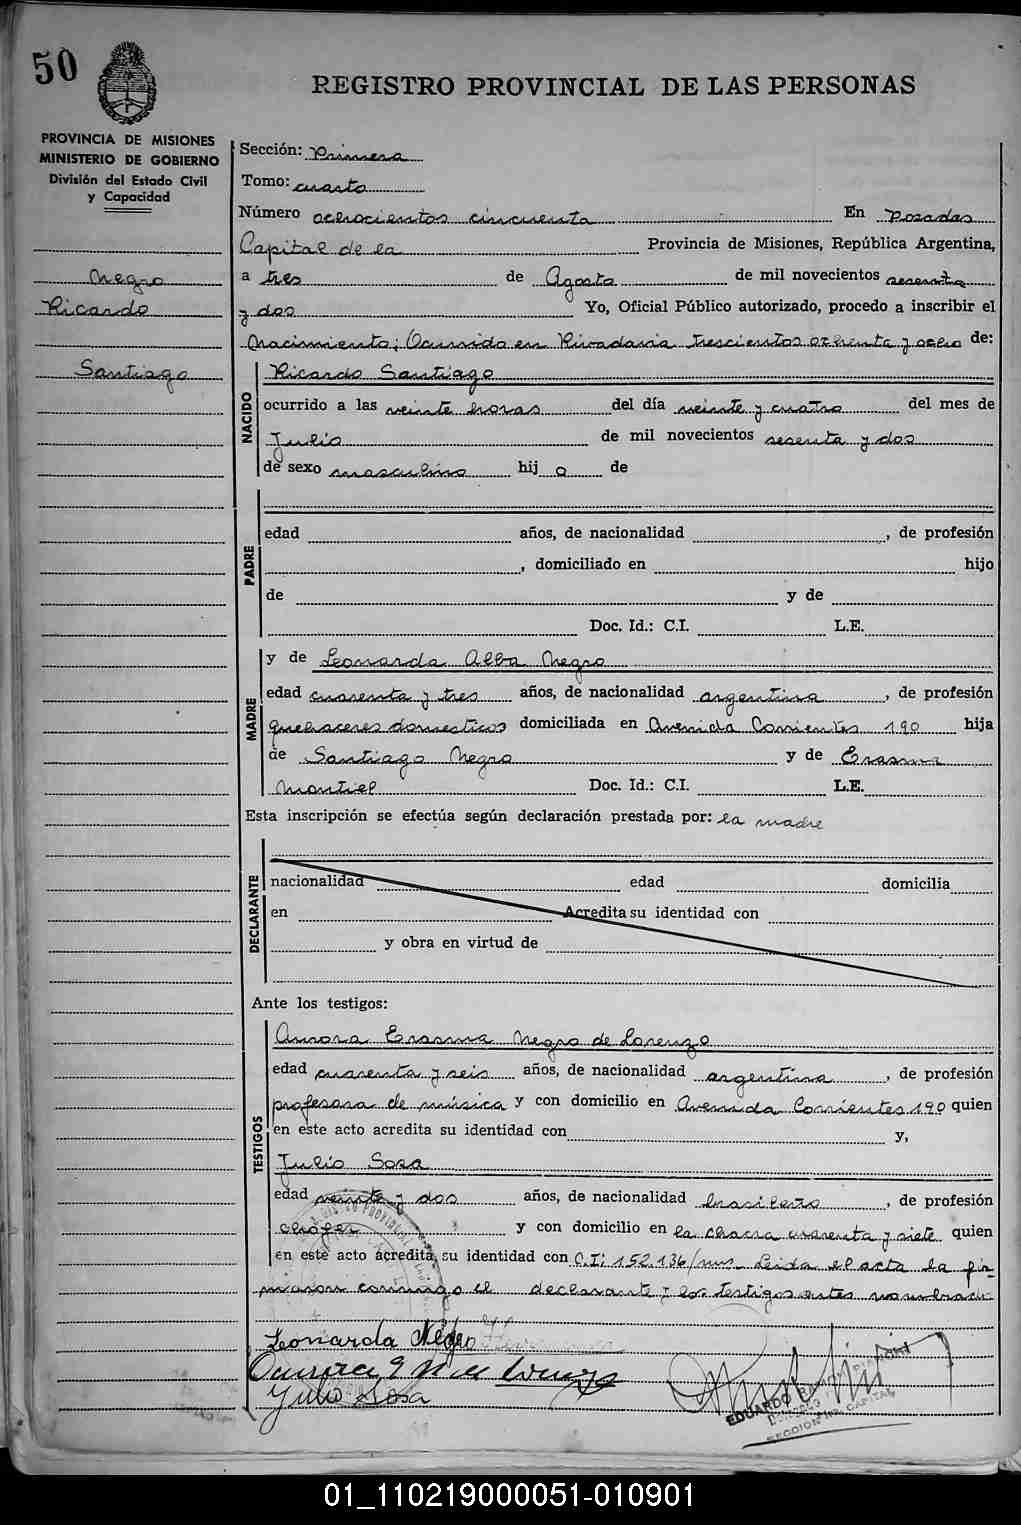 50
REGISTRO PROVINCIAL DE LAS PERSONAS
PROVINCIA DE MISIONES
MINISTERIO DE GOBIERNO
División del Estado Civil
y Capacidad
Negro
Ricardo
Santiago
Sección: Primera
Tomo: cuarto
Número ochocientos cincuenta En Posadas
Capital de la Provincia de Misiones, República Argentina,
a tres de Agosto de mil novecientos sesenta
y dos Yo, Oficial Público autorizado, procedo a inscribir el
Nacimiento; Ocurrido en Rivadavia trescientos ochenta y ocho de:
NACIDO
Ricardo Santiago
ocurrido a las veinte horas del día veinte y cuatro del mes de
Julio de mil novecientos sesenta y dos
de sexo masculino hij o de
PADRE
edad años, de nacionalidad , de profesión
, domiciliado en hijo
de y de
Doc. Id.: C.I. L.E.
MADRE
y de Leonarda Alba Negro
edad cuarenta y tres años, de nacionalidad argentina , de profesión
quehaceres domesticos domiciliada en Avenida Corrientes 190 hija
de Santiago Negro y de Erasma
Montiel Doc. Id.: C.I. L.E.
Esta inscripción se efectúa según declaración prestada por: la madre
DECLARANTE
nacionalidad edad domicilia
en Acredita su identidad con
y obra en virtud de
Ante los testigos:
TESTIGOS
Aurora Erasma Negro de Lorenzo
edad cuarenta y seis años, de nacionalidad argentina , de profesión
profesora de música y con domicilio en Avenida Corrientes 190 quien
en este acto acredita su identidad con y,
Julio Sosa
edad veinte y dos años, de nacionalidad brasileño , de profesión
chófer y con domicilio en la chacra cuarenta y siete quien
en este acto acredita su identidad con C.I: 152.136/mns. Leida el acta la fir-
maron conmigo el declarante y los testigos antes nombrados
Leonarda Negro
Aurora E N de Lorenzo
Julio Sosa
EDUARDO RAMON
SECCION 1ra. CAPITAL
01_110219000051-010901